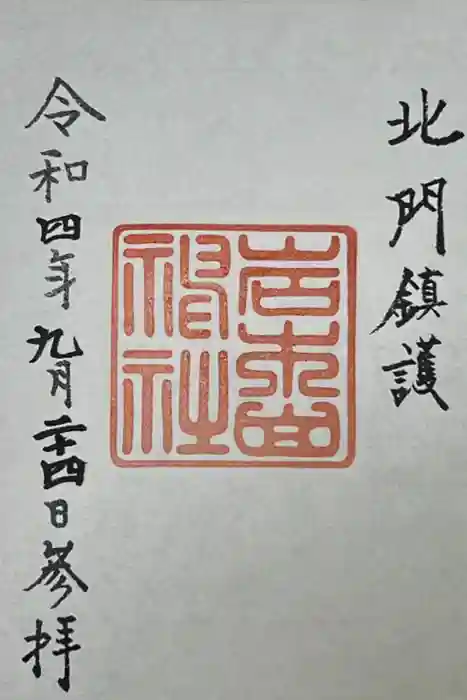 北門鎮護
岩木山
神社
令和四年九月二十四日参拝